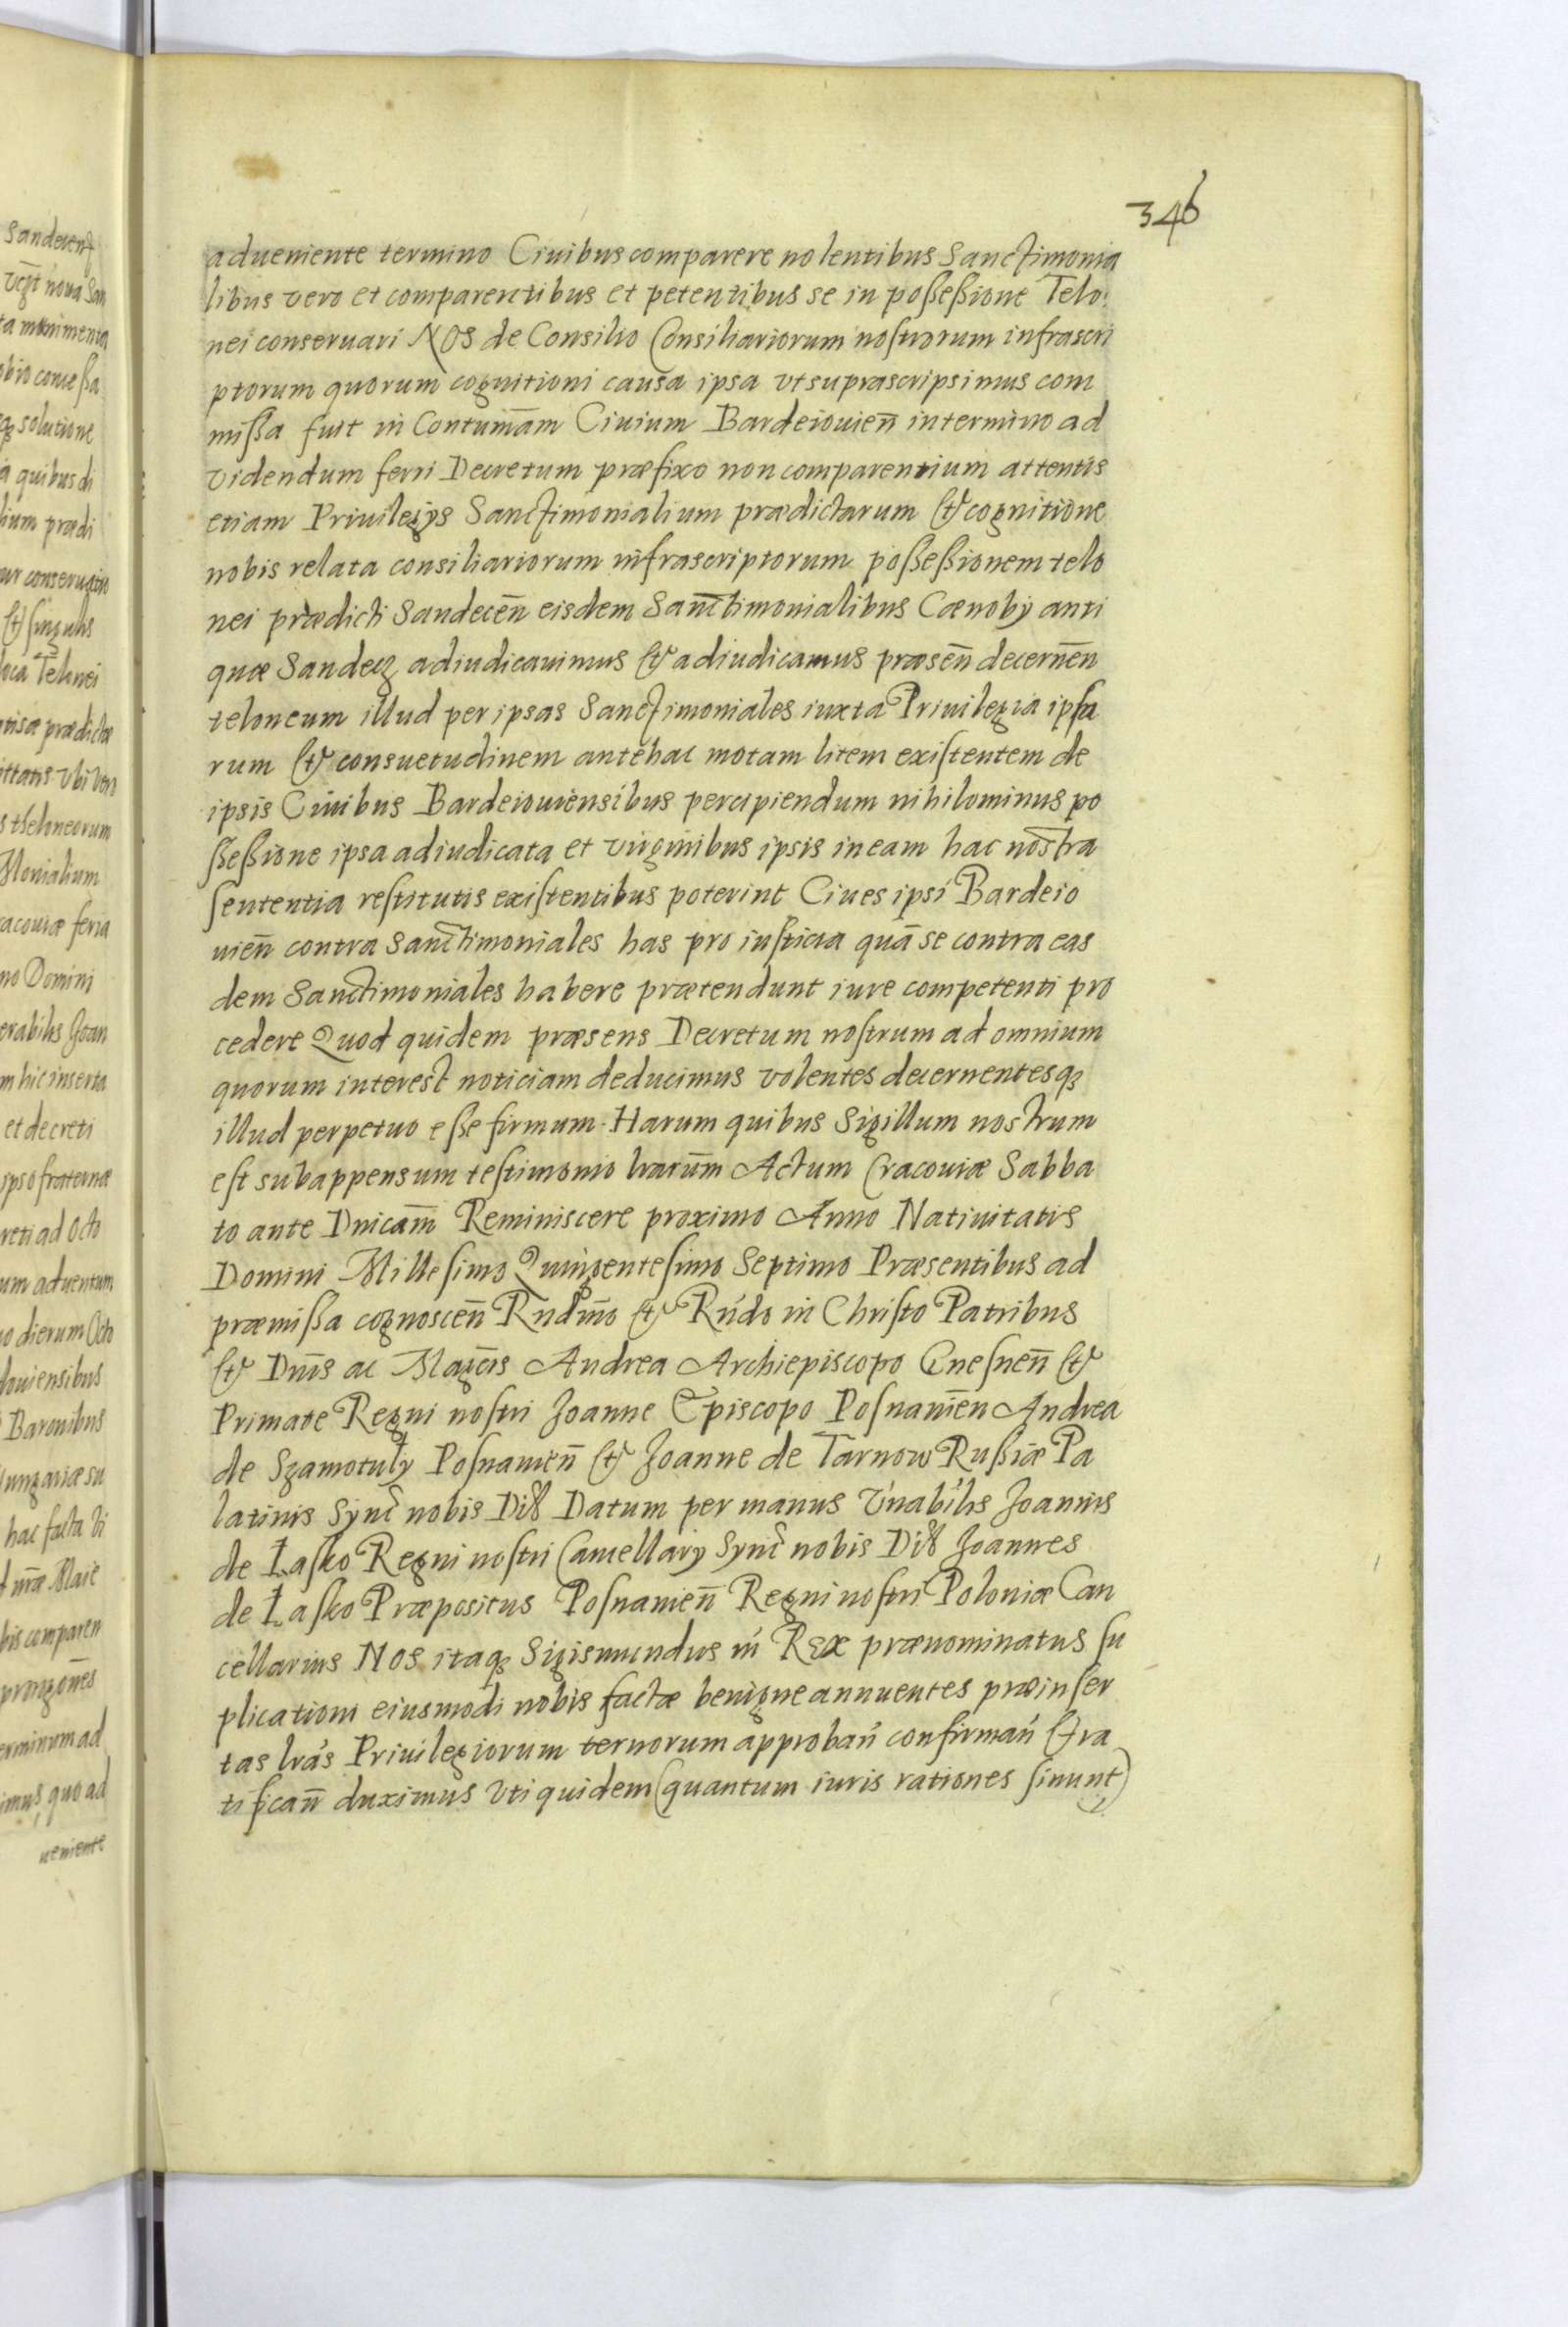 346
adueniente termino Ciuibus comparere nolentibus Sanctimonia
libus vero et comparentibus et petentibus se in poßeßione Telo
nei conseruari NOS de Consilio Consiliariorum nostrorum infrascri
ptorum quorum cognitioni causa ipsa vt suprascripsimus com
mißa fuit in Contumãm Ciuium Bardeiouieñ in termino ad
videndum ferri Decretum præfixo non comparentium attentis
etiam Priuilegijs Sanctimonialium prædictarum et cognitione
nobis relata consiliariorum infrascriptorum poßeßionem telo
nei prædicti Sandeceñ eisdem Sanctimonialibus Cænobij anti
quæ Sandecz adiudicauimus et adiudicamus præseñ decerneñ
teloneum illud per ipsas Sanctimoniales iuxta Priuilegia ipſa
rum et consuetudinem antehac motam litem exiſtentem de
ipsis Ciuibus Bardeiouiensibus percipiendum nihilominus po
ßeßione ipsa adiudicata et virginibus ipsis in eam hac nostra
ſententia reſtitutis exiſtentibus poterint Ciues ipsi Bardeio
uieñ contra Sanctimoniales has pro iuſticia quã se contra eas
dem Sanctimoniales habere prætendunt iure competenti pro
cedere Quod quidem præsens Decretum noſtrum ad omnium
quorum interest noticiam deducimus volentes decernentesq̃
illud perpetuo eße firmum. Harum quibus Sigillum nostrum
eſt subappensum teſtimonio lrarum̃ Actum Cracouiæ Sabba
to ante Dnicam̃ Reminiscere proximo Anno Natiuitatis
Domini Milleſimo Quingenteſimo Septimo Præsentibus ad
præmißa cognosceñ Rndm̃o et Rñdo in Chriſto Patribus
et Dñis ac Magcis Andrea Archiepiscopo Gneſneñ et
Primate Regni noſtri Joanne Episcopo Poſnanieñ Andrea
de Szamotuły Poſnanieñ et Joanne de Tarnow Rußiæ Pa
latinis Sync̃ nobis Dil Datum per manus Vñabilis Joannis
de Łaſko Regni noſtri Cancellarij Sync̃ nobis Dil Joannes
de Łaſko Præpositus Poſnanieñ Regni noſtri Poloniæ Can
cellarius NOS itaq̃ Sigismundus ſú REX prænominatus ſu
plicationi eiusmodi nobis factæ benigne annuentes præinſer
tas lrãs Priuilegiorum ternorum approbañ confirmañ et ra
tificañ duximus Vti quidem (quantum iuris rationes ſinunt)